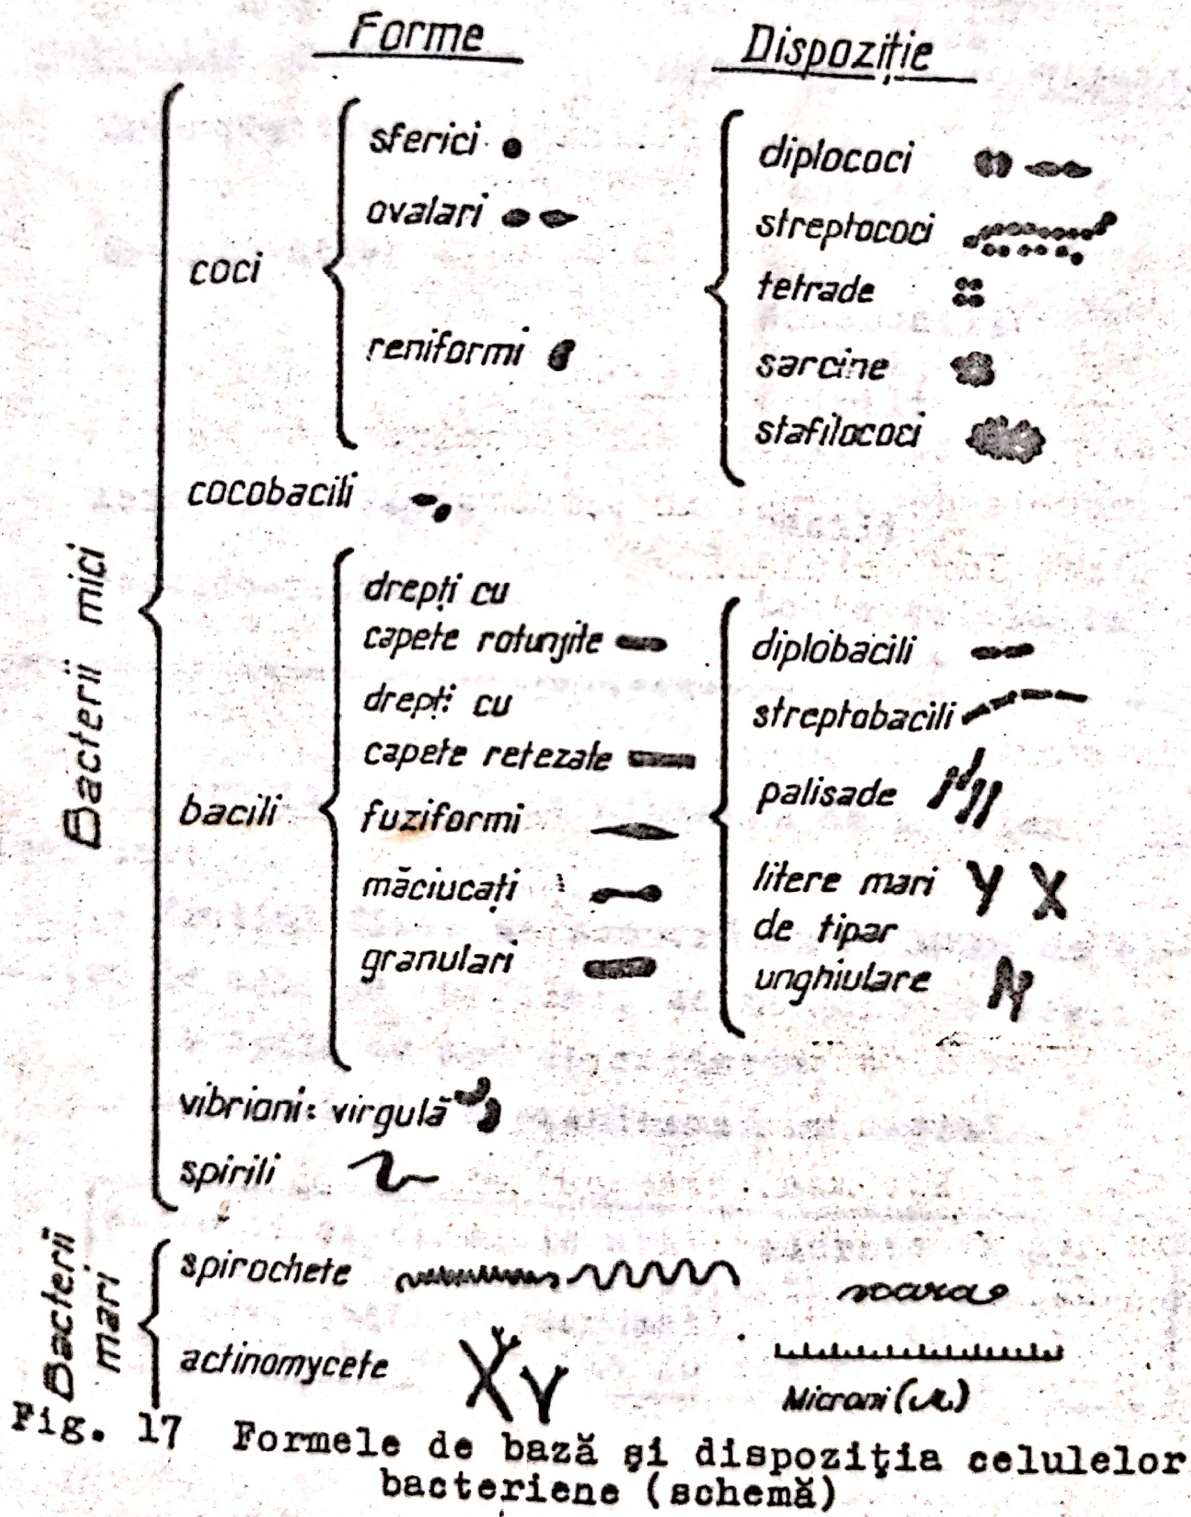 Forme
Dispoziție
Bacterii mici
coci
sferici
ovalari
reniformi
diplococi
streptococi
tetrade
sarcine
stafilococi
cocobacili
bacili
drepți cu
capete rotunjite
drepți cu
capete retezate
fuziformi
măciucați
granulari
diplobacili
streptobacili
palisade
litere mari
de tipar
unghiulare
vibrioni: virgulă
spirili
Bacterii
mari
spirochete
actinomycete
Microni (µ)
Fig. 17 Formele de bază și dispoziția celulelor
bacteriene (schemă)